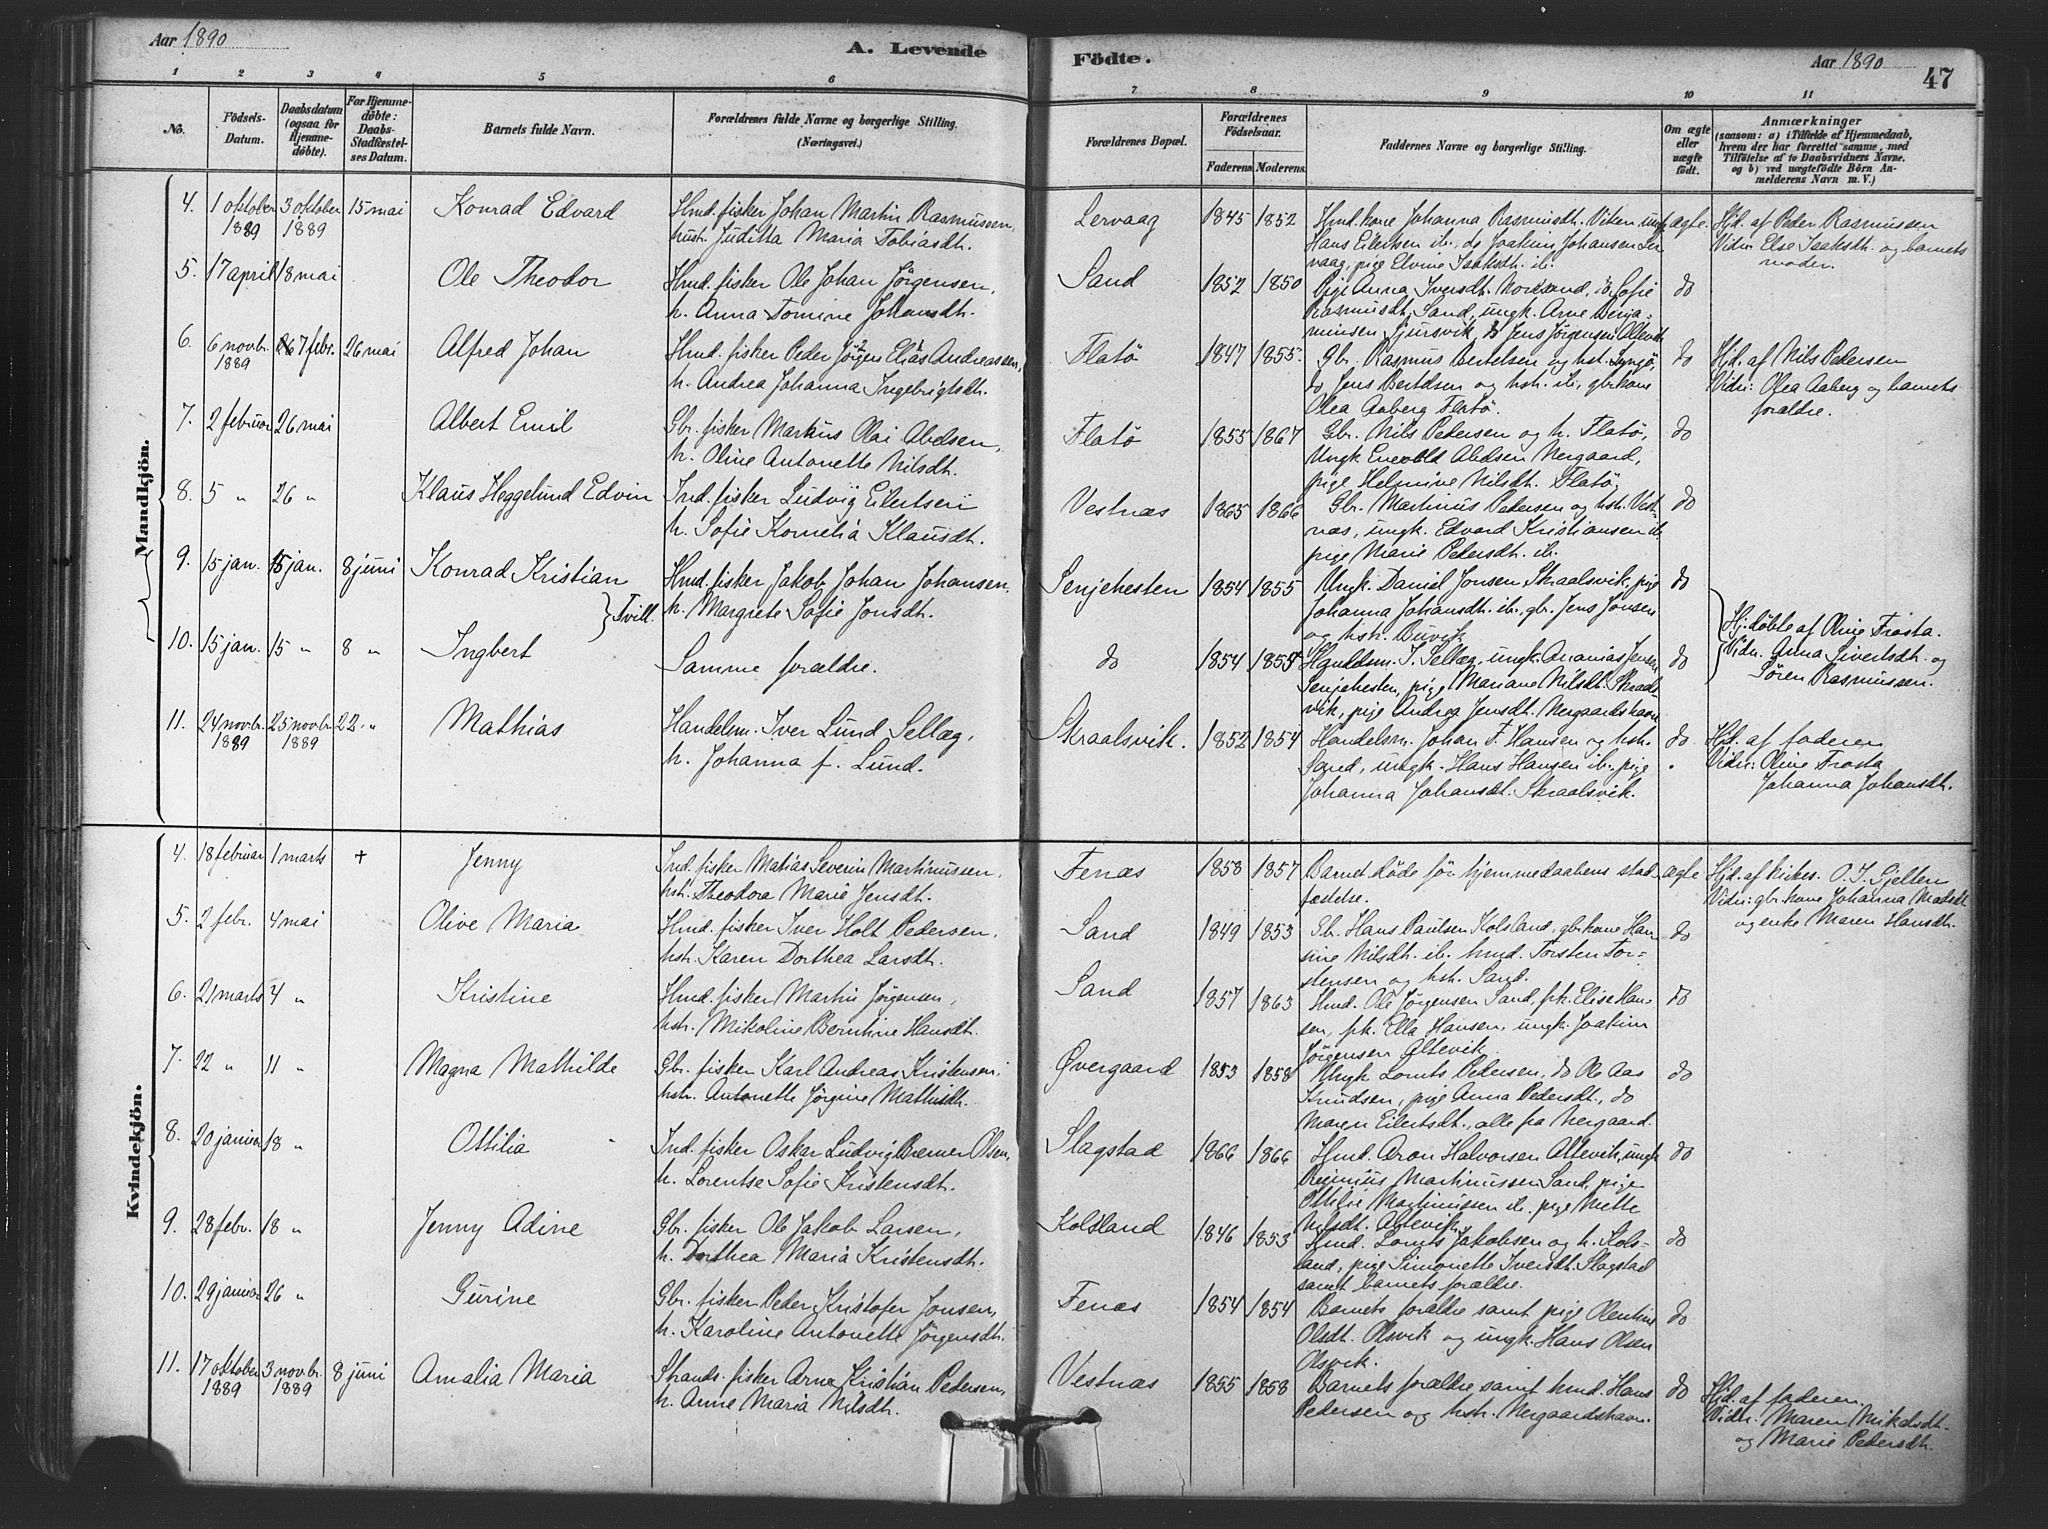 Aar 1890
A. Levende
Födte.
Aar 1890
47
1 2 3 4 5 6 7 8 9 10 11
No.
Födsels-
Datum.
Daabsdatum
(ogsaa for
Hjemme-
döbte).
For Hjemme-
döbte:
Daabs-
Stadfæstel-
ses Datum.
Barnets fulde Navn.
Forældrenes fulde Navne og borgerlige Stilling.
(Næringsvei.)
Forældrenes Bopæl.
Forældrenes
Födselsaar.
Faderens. Moderens.
Faddernes Navne og borgerlige Stilling.
Om ægte
eller
uægte
födt.
Anmærkninger
(saasom: a) i Tilfælde af Hjemmedaab,
hvem der har forrettet samme, med
Tilföielse af to Daabsvidners Navne.
og b) ved uægtefödte Börn An-
melderens Navn m. V.)
Mandkjön.
4. 1 oktober 1889 3 oktober 1889 15 mai Konrad Edvard
Hmd. fisker Johan Martin Rasmussen,
hust. Juditta Maria Tobiasdt.
Lervaag 1845 1852
Hmd. kone Johanna Rasmusdt. Viken, ungk.
Hans Eilertsen ib., do Joakim Johansen Ler-
vaag, pige Elvine Isaksdt. ib.
ægte.
Hjd. af Peder Rasmussen
Vidn: Else Isaksdt. og barnets
moder.
5. 17 april 18 mai Ole Theodor
Hmd. fisker Ole Johan Jörgensen,
h. Anna Tomine Johansdt.
Sand 1852 1850
Pige Anna Iversdt. Nordsand, do Sofie
Rasmusdt. Sand, ungk. Arne Benja-
minsen Gjursvik, do Jens Jörgensen Altevik
do
6. 6 novbr. 1889 7 febr. 26 mai Alfred Johan
Hmd. fisker Peder Jörgen Elias Andreassen,
h. Andrea Johanna Ingebrigtsdt.
Flatö 1847 1855
Gbr. Rasmus Bertelsen og hst. Lyngö,
do Jens Bertelsen og hst. ib., gbrkone
Olea Aaberg Flatö.
do
Hjd. af Nils Pedersen
Vidn: Olea Aaberg og barnets
forældre.
7. 2 februar 26 mai Albert Emil
Gbr. fisker Markus Olai Abelsen,
h. Oline Antonette Nilsdt.
Flatö 1855 1867
Gbr. Nils Pedersen og h. Flatö,
Ungk. Enevold Abelsen Nergaard,
pige Helmine Nilsdt. Flatö.
do
8. 5 " 26 " Klaus Heggelund Edvin
Ind. fisker Ludvig Eilertsen
h. Sofie Kornelia Klausdt.
Vestnæs 1865 1866
Gbr. Martinus Pedersen og hst. Vest-
næs, ungk. Edvard Kristiansen ib
pige Marie Pedersdt. ib.
do
9. 15 jan. 15 jan. 8 juni Konrad Kristian
Hmd. fisker Jakob Johan Johansen,
h. Margrete Sofie Jonsdt.
Tvill.
Senjehesten 1854 1855
Ungk. Daniel Jonsen Skraalsvik, pige
Johanna Johansdt. ib., gbr. Jens Jonsen
og hstr. Buvik
do
10. 15 jan. 15 " 8 " Ingbert
Samme forældre.
do 1854 1854
Handelsm. I. Sellæg, ungk. Ananias Jensen
Senjehesten, pige Mariane Nilsdt. Skraals-
vik, pige Andrea Jensdt. Nergaardshavn
do
Hj.döbte af Oline Frosta.
Vidn. Anna Sivertsdt. og
Sören Rasmussen.
11. 24 novbr. 1889 25 novbr. 1889 22 " Mathias
Handelsm. Iver Lund Sellæg,
h. Johanna f. Lund.
Skraalsvik. 1852 1854
Handelsm. Johan F. Hansen og hst.
Sand, ungk. Hans Hansen ib. pige
Johanna Johansdt. Skraalsvik.
do.
Hjd. af faderen
Vidn: Oline Frosta
Johanna Johansdt.
Kvindekjön.
4. 18 februar 1 marts + Jenny
Ind. fisker Matias Severin Martinussen,
hst. Theodora Marie Jensdt.
Fenæs 1858 1857
Barnet döde för hjemmedaabens stad-
fæstelse.
ægte
Hjd. af kirkes. O. J. Gjelten
Vidn: gbr.kone Johanna Matsdt
og enke Maren Hansdt.
5. 2 febr. 4 mai Olive Maria
Hmd. fisker Iver Holt Pedersen,
hst. Karen Dorthea Larsdt.
Sand 1849 1853
Gb. Hans Paulsen Kolsland, gbrkone Han-
sine Nilsdt. ib. hmd. Torsten Tor-
stensen og hst. Sand.
do
6. 21 marts 4 " Kristine
Hmd. fisker Martin Jörgensen,
hst. Mikoline Berntine Hansdt.
Sand 1857 1863
Hmd. Ole Jörgensen Sand, frk. Elise Han-
sen, frk. Ella Hansen, ungk. Joakim
Jörgensen Altevik
do
7. 22 " 11 " Magna Mathilde
Gbr. fisker Karl Andreas Kristensen,
hst. Antonette Jörgine Mathisdt.
Øvergaard 1853 1858
Ungk. Lornts Pedersen, do Ole Aas
Knudsen, pige Anna Pedersdt., do
Maren Eilertsdt., alle fra Nergaard.
do
8. 20 januar 18 " Ottilia
Ind. fisker Oskar Ludvig Bremer Olsen,
h. Lorentse Sofie Kristensdt.
Slagstad 1866 1866
Hmd. Aron Halvorsen Altevik, ungk
Reginius Martinussen Sand, pige
Ottilie Martinussen ib. pige Mette
Nilsdt. Altevik
do
9. 28 febr. 18 " Jenny Adine
Gbr. fisker Ole Jakob Larsen,
h. Dorthea Maria Kristensdt.
Kolsland 1846 1853
Hmd. Lornts Jakobsen og h. Kols-
land, pige Simonette Iversdt. Slagstad
samt barnets forældre.
do
10. 29 januar 26 " Gurine
Gbr. fisker Peder Kristofer Jonsen,
h. Karoline Antonette Jörgensdt.
Fenæs 1854 1854
Barnets forældre samt pige Olentine
Olsdt. Olsvik og ungk. Hans Olsen
Olsvik.
do
11. 17 oktober 1889 3 novbr. 1889 8 juni Amalia Maria
Strands. fisker Arne Kristian Pedersen,
h. Anne Maria Nilsdt.
Vestnæs 1855 1858
Barnets forældre samt hmd. Hans
Pedersen og hst. Nergaardshavn.
do
Hjd. af faderen
Vidn. Maren Mikalsdt.
og Marie Pedersdt.